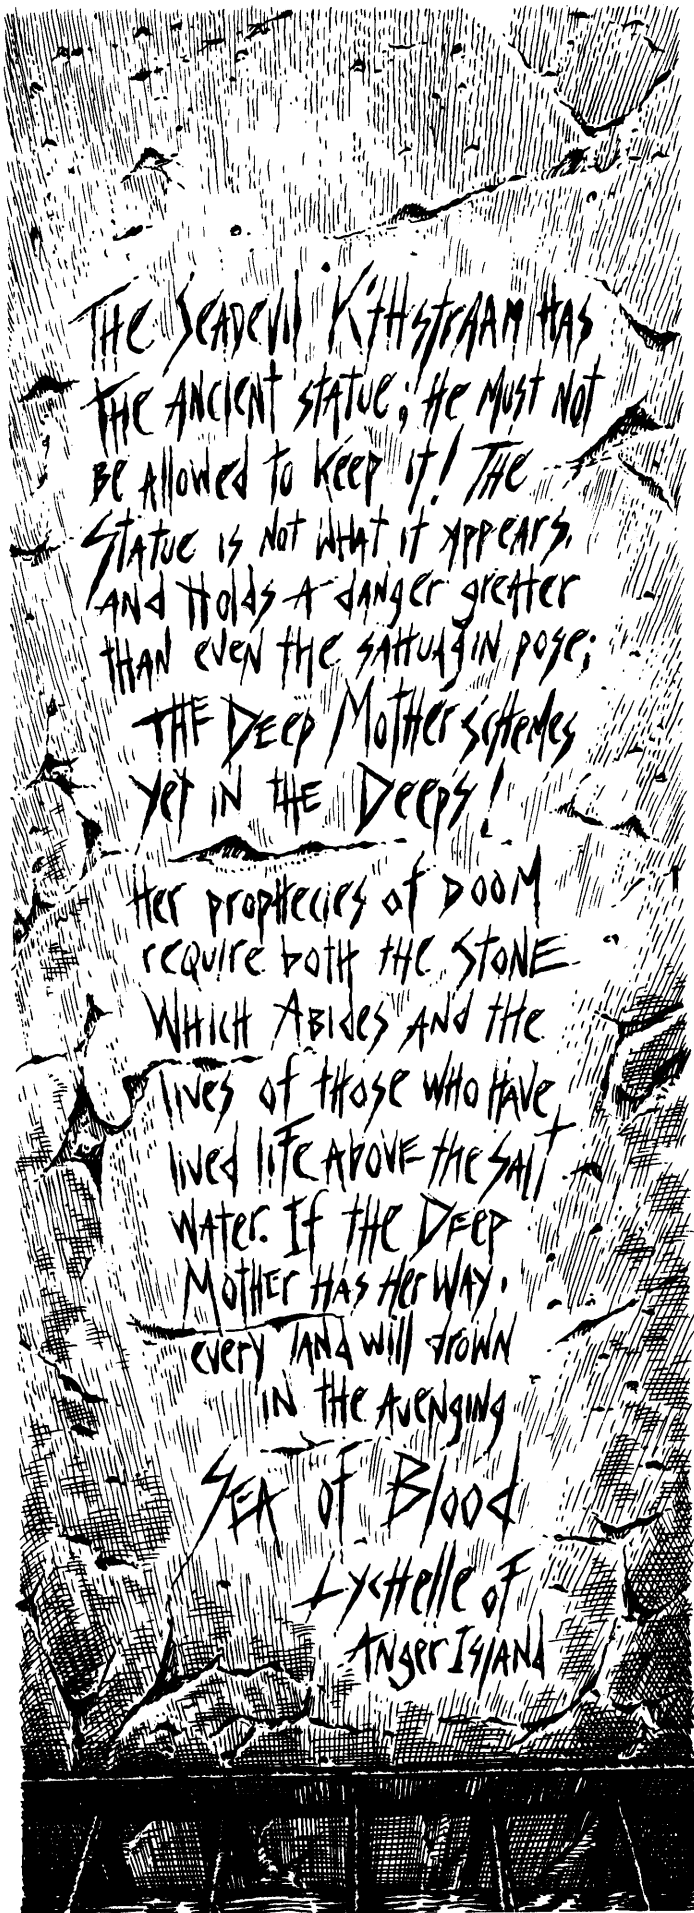 The Seadevil Kithstraam has
the ancient statue; he must not
be allowed to keep it! The
Statue is not what it appears,
and holds a danger greater
than even the sahuagin pose;
the Deep Mother schemes
yet in the Deeps!
Her prophecies of doom
require both the Stone
Which Abides and the
lives of those who have
lived life above the salt
water. If the Deep
Mother has her way,
every land will drown
in the avenging
Sea of Blood
Lychelle of
Anger Island